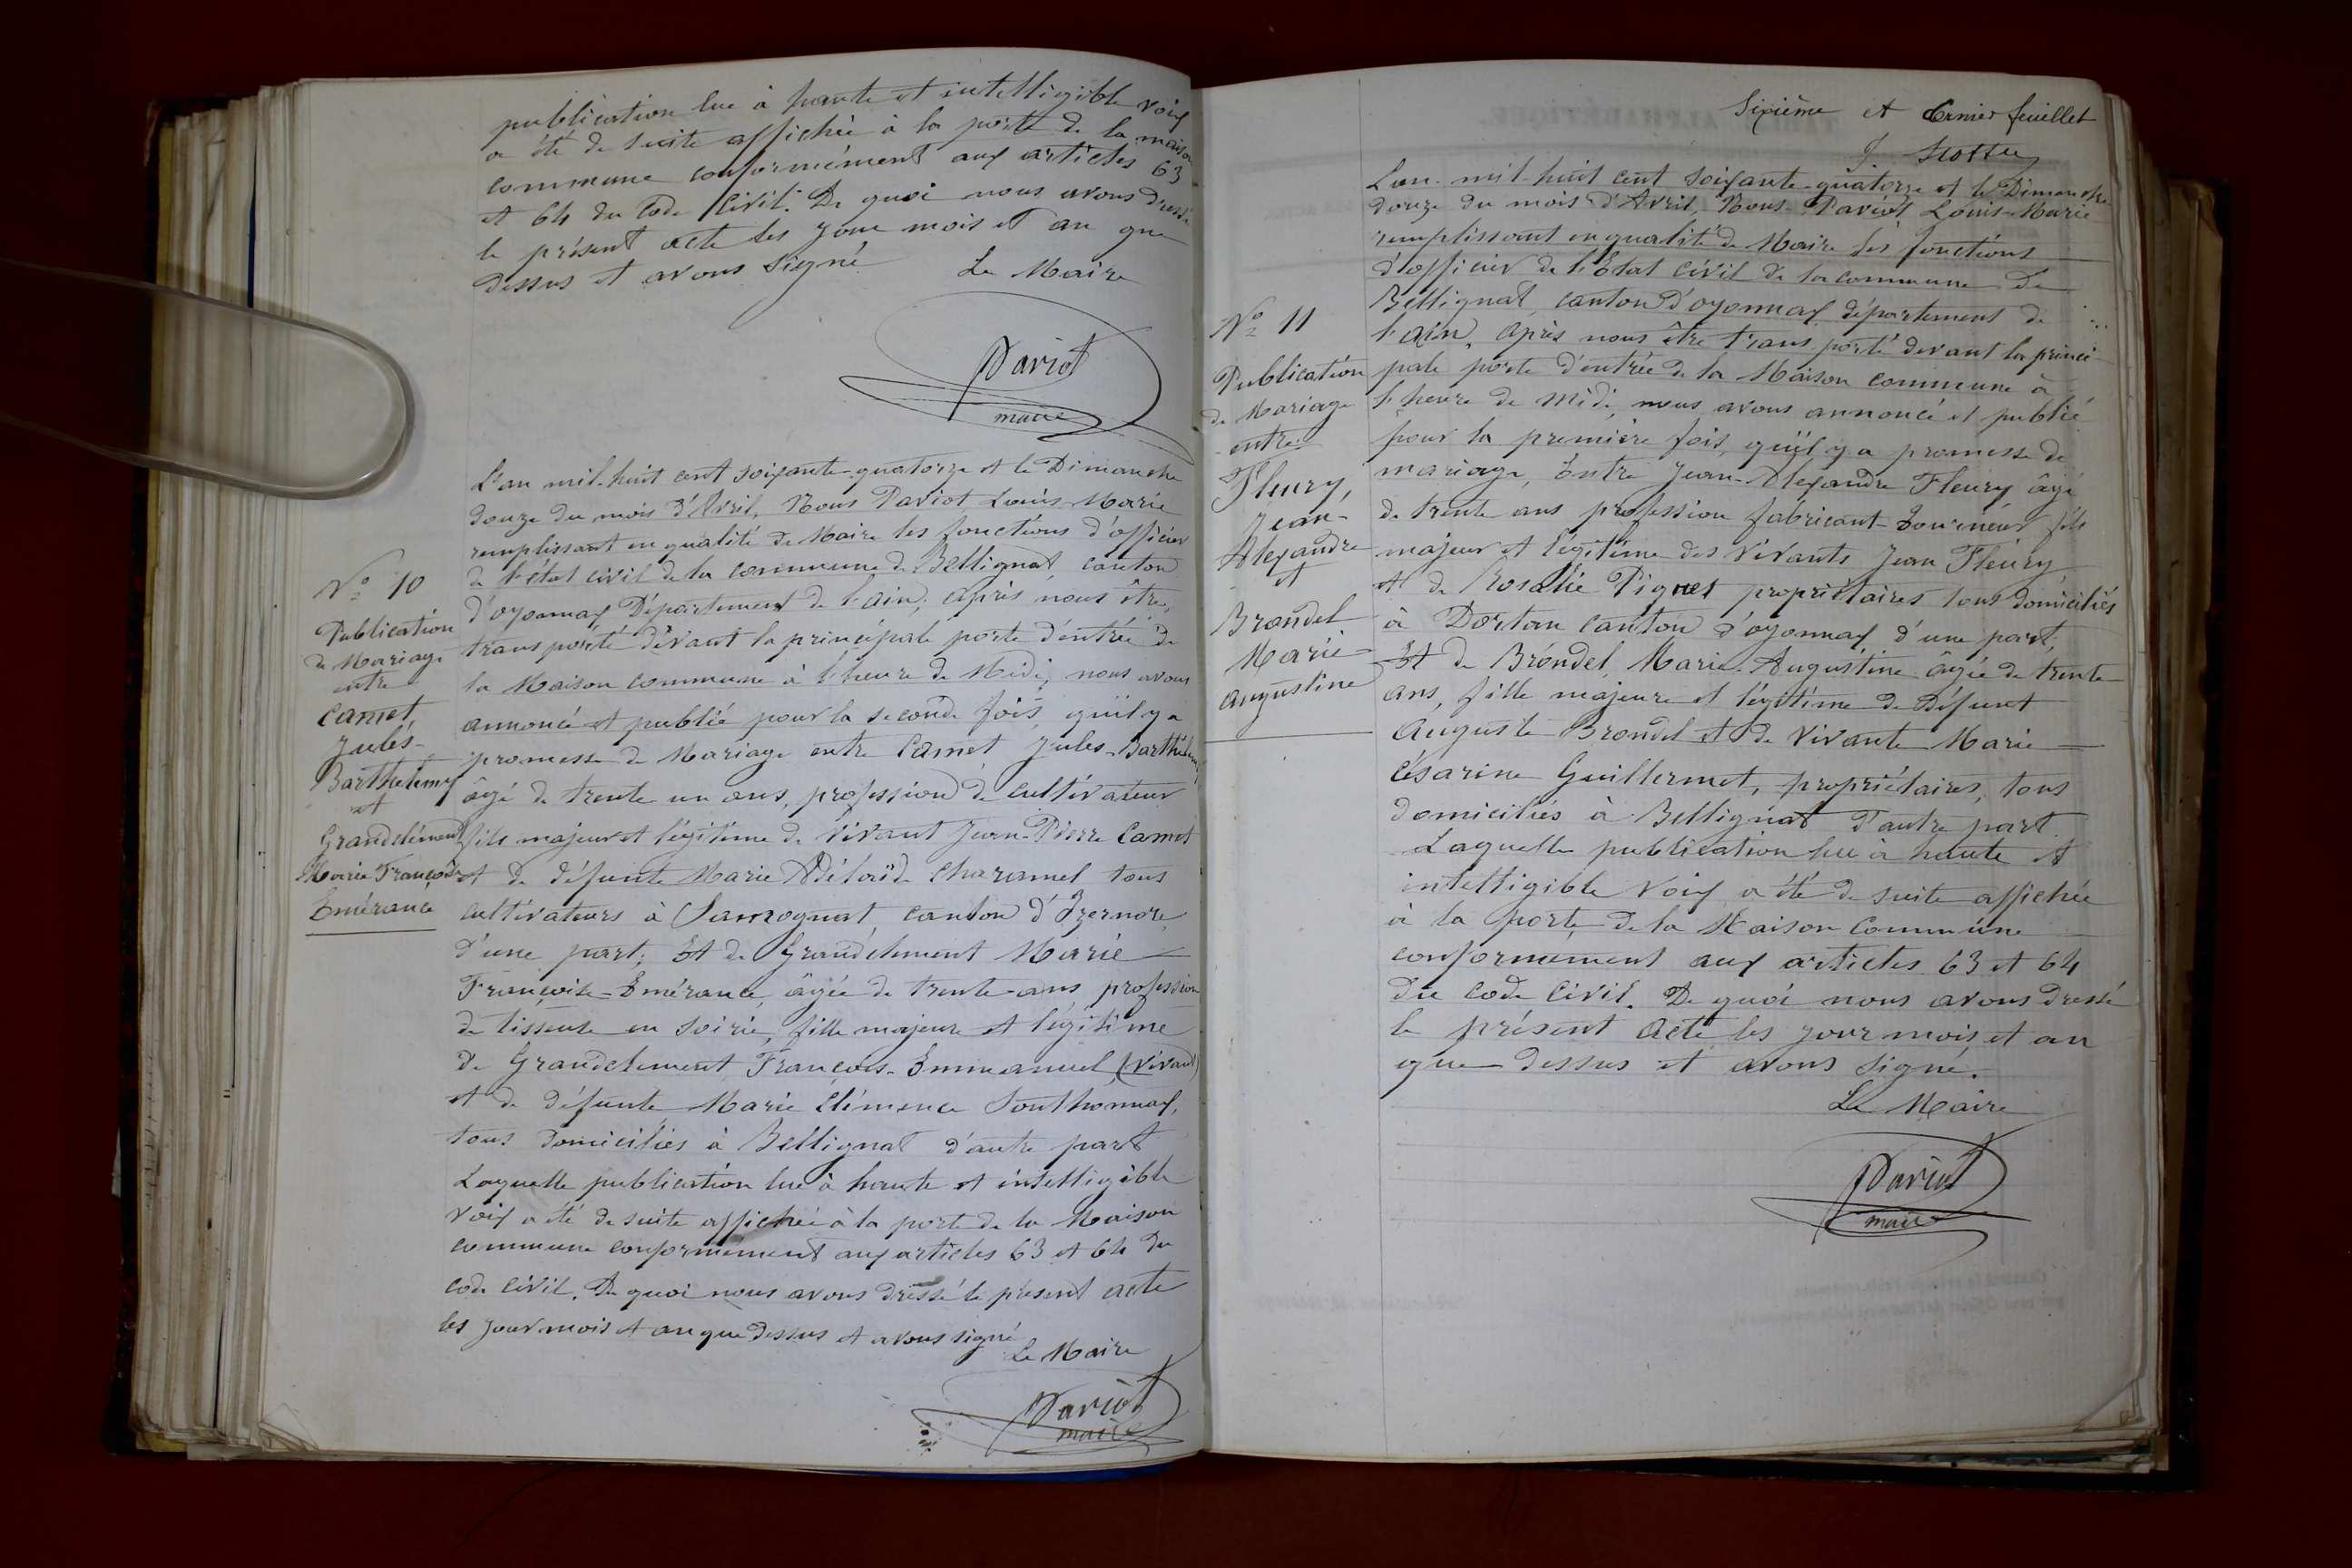 publication lue à haute et intelligible voix
a été de suite affichée à la porte de la maison
commune conformément aux articles 63
et 64 du Code Civil. De quoi nous avons dressé
le présent acte les jour mois et an que
dessus et avons signé
Le Maire
Pariot
maire
L'an mil-huit cent soixante-quatorze et le Dimanche
douze du mois d'Avril, Nous Pariot Louis-Marie
remplissant en qualité de Maire les fonctions d'officier
de l'état civil de la commune de Bellignat, canton
d'oyonnax Département de l'ain, après nous être
transporté devant la principale porte d'entrée de
la Maison commune à l'heure de Midi, nous avons
annoncé et publié pour la seconde fois, qu'il y a
promesse de Mariage entre Camet Jules-Barthélemy
âgé de trente un ans, profession de cultivateur
fils majeur et légitime de vivant Jean-Pierre Camet
et de défunte Marie Adélaïde Charamel tous
cultivateurs à Samognat canton d'Izernore,
d'une part; Et de Grandclément Marie
Françoise-Emérance, âgée de trente ans profession
de tisseuse en soirie, fille majeure et légitime
de Grandclement François-Emmanuel (vivant)
et de défunte Marie Clémence Southonnax,
tous domiciliés à Bellignat d'autre part
Laquelle publication lue à haute et intelligible
voix a été de suite affichée à la porte de la Maison
commune conformément aux articles 63 et 64 du
code civil. De quoi nous avons dressé le présent acte
les jour mois et an que dessus et avons signé
Le Maire
Pariot
maire
Nº 10
Publication
de Mariage
entre
Camet,
Jules-
Barthelemy
et
Grandclément
Marie Françoise
Emérance
Sixième et dernier feuillet
L'an mil-huit cent soixante-quatorze et le Dimanche
douze du mois d'Avril, Nous Pariot Louis-Marie
remplissant en qualité de Maire les fonctions
d'officier de l'Etat civil de la commune de
Bellignat, canton d'oyonnax département de
l'ain, après nous être transporté devant la princi-
pale porte d'entrée de la Maison commune à
l'heure de midi, nous avons annoncé et publié
pour la première fois, qu'il y a promesse de
mariage, Entre Jean-Alexandre Fleury âgé
de trente ans profession fabricant-tourneur fils
majeur et légitime des vivants Jean Fleury
et de Rosalie Pignet propriétaires tous domiciliés
à Dortan canton d'oyonnax d'une part;
Et de Brondel, Marie-Augustine âgée de trente
ans, fille majeure et légitime de Défunt
Auguste Brondel et de vivante Marie
Césarine Guillermet, propriétaires, tous
domiciliés à Bellignat d'autre part.
Laquelle publication lue à haute et
intelligible voix a été de suite affichée
à la porte de la Maison Commune
conformement aux articles 63 et 64
du code civil. De quoi nous avons dressé
le présent acte les jour mois et an
que dessus et avons signé.
Le Maire
Pariot
maire
Nº 11
Publication
de Mariage
entre
Fleury,
Jean-
Alexandre
et
Brondel
Marie
Augustine